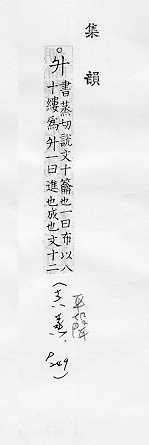 集韻
○升書蒸切說文十龠也一曰布以八
十縷爲升一曰進也成也文十二
(十六蒸、
P249)